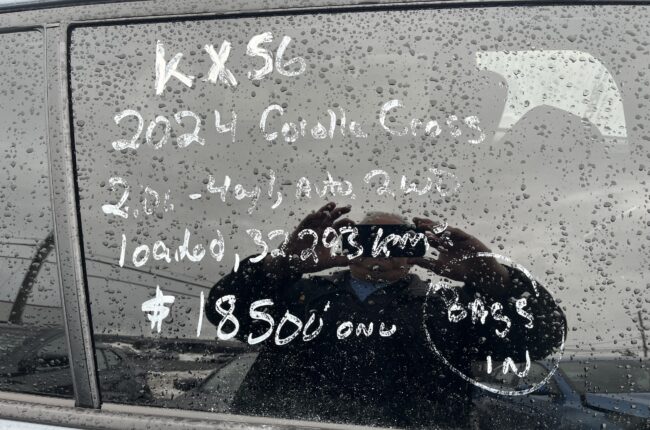 KX56
2024 Corolla Cross
2.0L - 4cyl, Auto, 2WD
loaded, 32293 km's
$18500 ONU
BAGS
IN